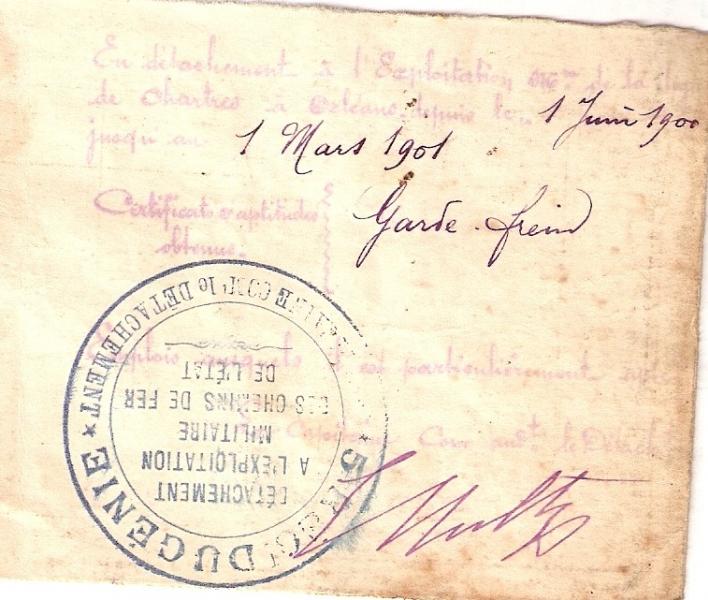 En détachement à l'Exploitation de la
de Chartres à Orléans depuis le 1 Juin 1900
jusqu'au 1 Mars 1901
Certificats d'aptitudes
obtenus.
Garde-frein
Emplois auxquels il est particulièrement
Le Capitaine Comandt le Détach
★ 5E RGT DU GÉNIE ★
DÉTACHEMENT
A L'EXPLOITATION
MILITAIRE
DES CHEMINS DE FER
DE L'ÉTAT
DÉTACHEMENT